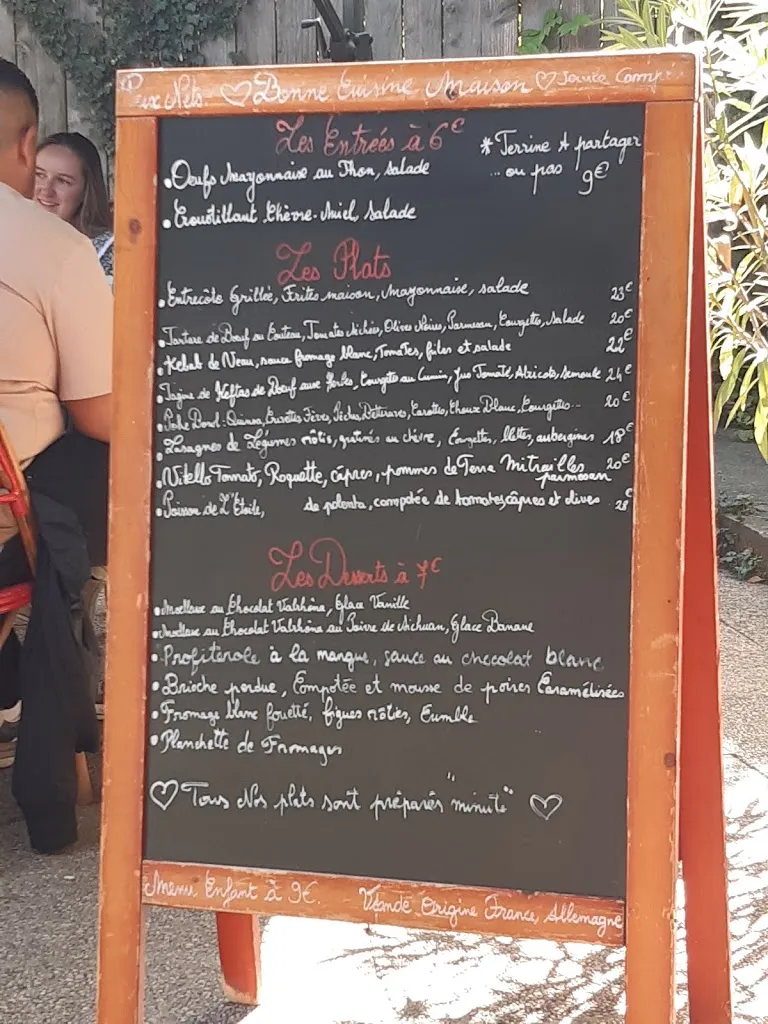 Prix Nets ♡ Bonne Cuisine Maison ♡ Service Comp
Les Entrées à 6€
* Terrine A partager
... ou pas 9€
• Oeufs Mayonnaise au Thon, salade
• Croustillant Chèvre-Miel, salade
Les Plats
• Entrecôte Grillée, Frites maison, Mayonnaise, salade 23€
• Tartare de Boeuf au Couteau, Tomates séchées, Olives Noires, Parmesan, Courgette, Salade 20€
• Kebab de Veau, sauce fromage blanc, Tomates, frites et salade 22€
• Tagine de Keftas de Boeuf aux Herbes, Courgette au Cumin, Jus Tomaté, Abricots, semoule 24€
• Poke Bowl: Quinoa, Crevettes Fèves, Pêches, Betteraves, Carottes, Choux Blanc, Courgettes... 20€
• Lasagnes de Légumes rôtis, gratinés au chèvre, Courgettes, blettes, aubergines 18€
• Vitello Tomato, Roquette, câpres, pommes de Terre Mitrailles 20€
parmesan
• Poisson de L'Etoile, de polenta, compotée de tomates, câpres et olives 28€
Les Desserts à 7€
• Moelleux au Chocolat Valrhôna, Glace Vanille
• Moelleux au Chocolat Valrhôna au Poivre de Sichuan, Glace Banane
• Profiterole à la mangue, sauce au chocolat blanc
• Brioche perdue, Compotée et mousse de poires Caramélisées
• Fromage blanc fouetté, figues rôties, Crumble
• Planchette de Fromages
♡ Tous Nos plats sont préparés "minute" ♡
Menu Enfant à 9€. Viande Origine France, Allemagne